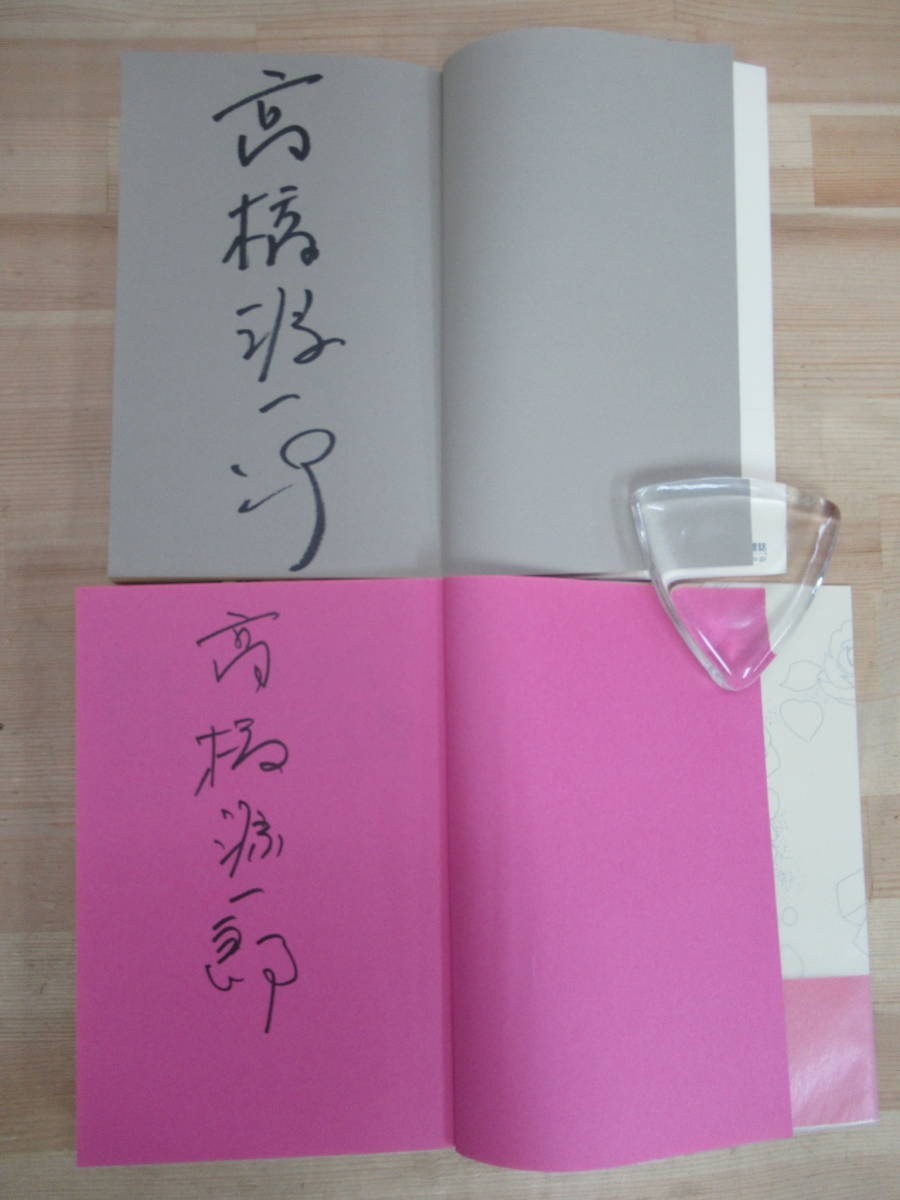 高橋源一郎
高橋源一郎